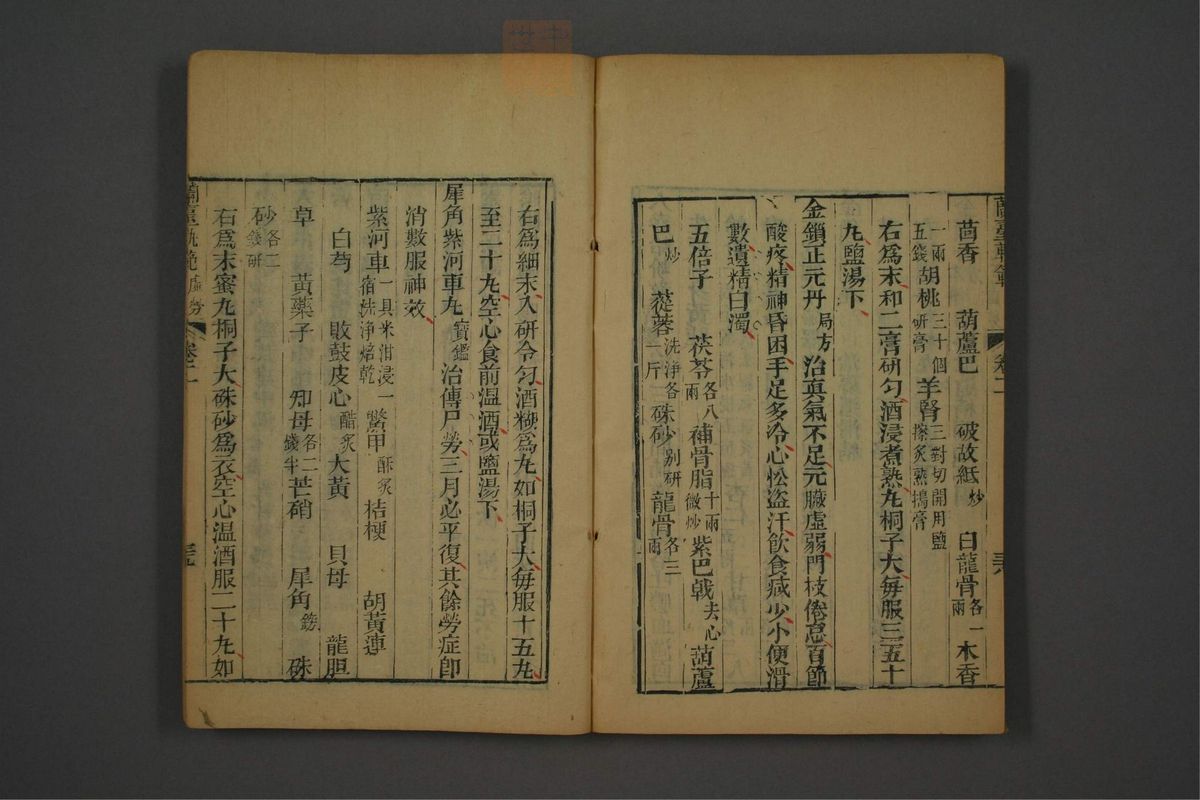 茴香 葫蘆巴 破故紙炒 白龍骨各一兩 木香
一兩五錢 胡桃三十個研膏 羊腎三對切開用鹽擦炙熟搗膏
右爲末和二膏研勻酒浸煮熟丸桐子大每服三五十
丸鹽湯下
金鎖正元丹局方治真氣不足元臟虛弱門枝倦怠百節
酸疼精神昏困手足多冷心忪盜汗飲食减少小便滑
數遺精白濁
五倍子 茯苓各八兩 補骨脂十兩微炒 紫巴戟去心 葫蘆
巴炒 蓯蓉洗淨各一斤 硃砂別研 龍骨各三兩
卷二
右爲細末入研令勻酒糊爲丸如桐子大每服十五丸
至二十丸空心食前溫酒或鹽湯下
犀角紫河車丸寶鑑治傳尸勞三月必平復其餘勞症卽
消數服神效
紫河車一具米泔浸一宿洗淨焙乾 鱉甲酥炙 桔梗 胡黃連
白芍 敗鼓皮心醋炙 大黃 貝母 龍胆
草 黃藥子 知母各二錢半 芒硝 犀角錢 硃
砂各二錢研
右爲末蜜丸桐子大硃砂爲衣空心溫酒服二十丸如